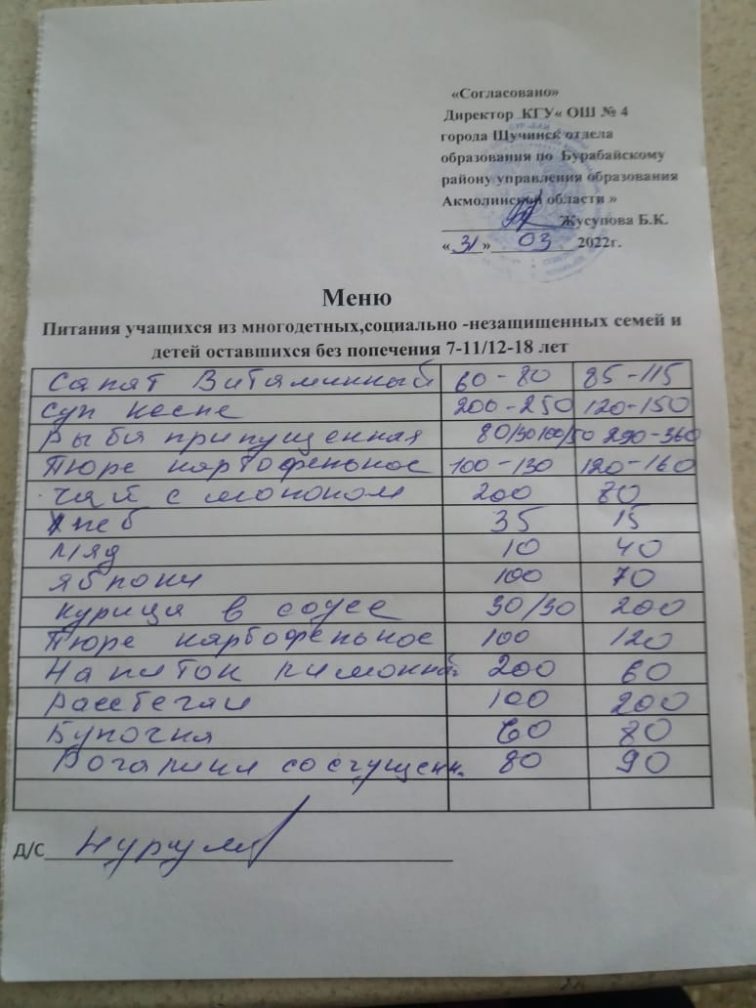 «Согласовано»
Директор КГУ« ОШ № 4
города Щучинск отдела
образования по Бурабайскому
району управления образования
Акмолинской области »
Жусупова Б.К.
«31» 03 2022г.
Меню
Питания учащихся из многодетных,социально -незащищенных семей и
детей оставшихся без попечения 7-11/12-18 лет
Салат Витаминный 60-80 85-115
Суп кеспе 200-250 120-150
Рыба припущенная 80/50 100/50 290-360
Пюре картофельное 100-130 120-160
Чай с молоком 200 80
Хлеб 35 15
Мяд 10 40
Яблоки 100 70
Курица в соусе 30/30 200
Пюре картофельное 100 120
Напиток лимонн. 200 60
Расстегаи 100 200
Булочка 60 80
Рогалики со сгущенн. 80 90
Д/С